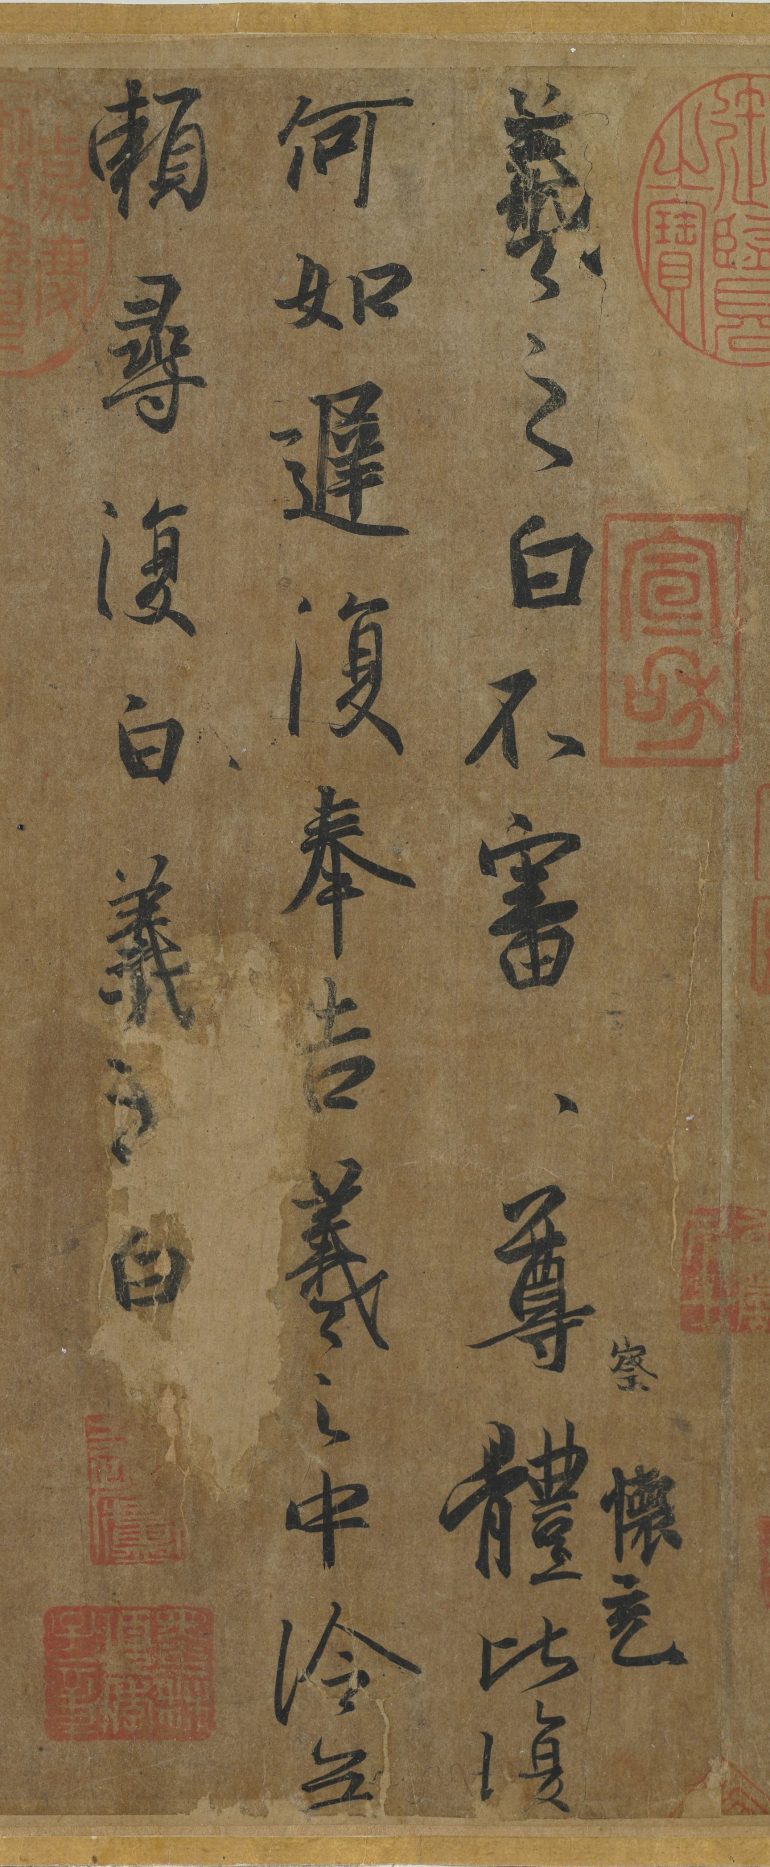 之寶
宣和
察
懷充
羲之白不審、尊體比復
何如遲復奉告羲之中冷無
賴尋復白羲之白
嘉慶